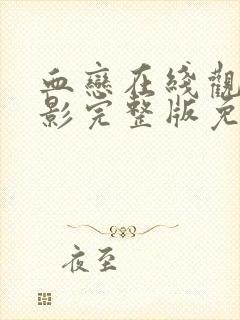 血戀在綫觀
影完整版免
夜至